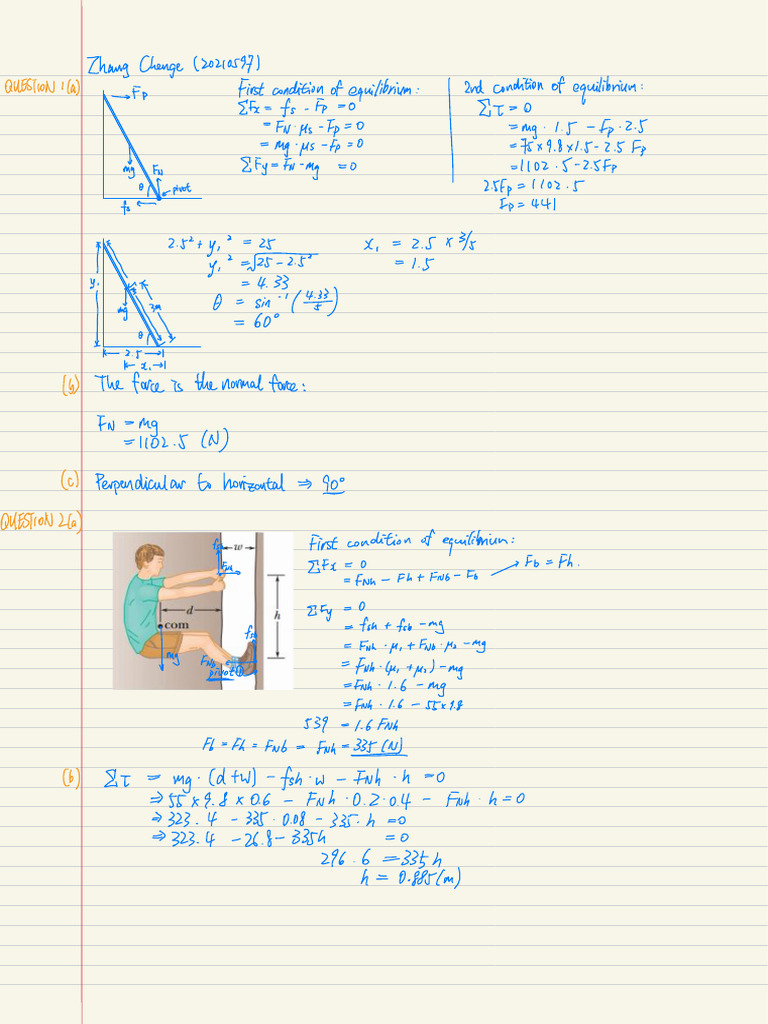 Zhang Chenge (20210597)
QUESTION 1(a)
First condition of equilibrium:
ΣFx = fs - Fp = 0
= FN · μs - Fp = 0
= mg · μs - Fp = 0
ΣFy = FN - mg = 0
2nd condition of equilibrium:
Στ = 0
= mg · 1.5 - Fp · 2.5
= 75 × 9.8 × 1.5 - 2.5 Fp
= 1102.5 - 2.5Fp
2.5Fp = 1102.5
Fp = 441
Fp
mg
FN
θ
pivot
fs
2.5² + y₁² = 25
y₁² = √25 - 2.5²
= 4.33
θ = sin⁻¹ (4.33/5)
= 60°
x₁ = 2.5 × 3/5
= 1.5
y₁
3m
mg
θ
2.5
x₁
(b)
The force is the normal force:
FN = mg
= 1102.5 (N)
(c)
Perpendicular to horizontal ⇒ 90°
QUESTION 2(a)
w
d
h
com
mg
fsb
FNb
pivot
First condition of equilibrium:
ΣFx = 0
= FNh - Fh + FNb - Fb → Fb = Fh.
ΣFy = 0
= fsh + fsb - mg
= FNh · μ₁ + FNb · μ₂ - mg
= FNh · (μ₁ + μ₂) - mg
= FNh · 1.6 - mg
= FNh · 1.6 - 55 × 9.8
539 = 1.6 FNh
Fb = Fh = FNb = FNh = 335 (N)
(b)
Στ = mg · (d + w) - fsh · w - FNh · h = 0
⇒ 55 × 9.8 × 0.6 - FNh · 0.2 · 0.4 - FNh · h = 0
⇒ 323.4 - 335 · 0.08 - 335 · h = 0
⇒ 323.4 - 26.8 - 335h = 0
296.6 = 335h
h = 0.885 (m)